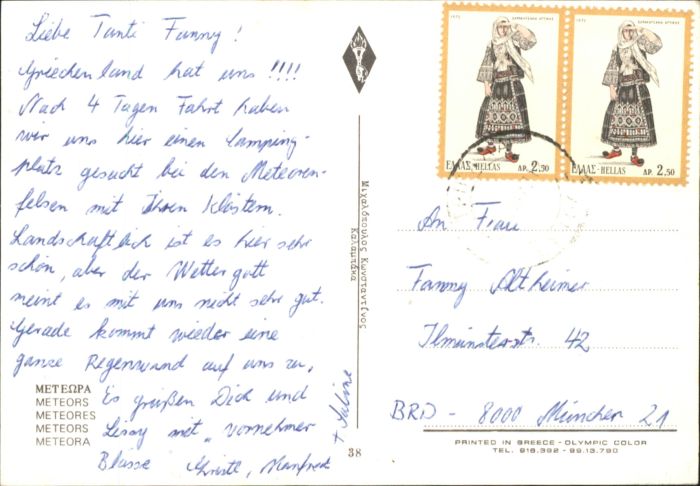 Liebe Tanti Fanny!
Griechenland hat uns!!!!
Nach 4 Tagen Fahrt haben
wir uns hier einen Camping-
platz gesucht bei den Meteoren-
felsen mit ihren Klöstern.
Landschaftlich ist es hier sehr
schön, aber der Wettergott
meint es mit uns nicht sehr gut.
Gerade kommt wieder eine
ganze Regenwand auf uns zu,
Es grüßen Dich und
Lissy mit „vornehmer
Blässe Christl, Manfred
+ Sabine
ΜΕΤΕΩΡΑ
METEORS
METEORES
METEORS
METEORA
38
Μιχαλόπουλος Κωνσταντίνος
Καλαμπάκα
1972
ΕΛΛΑΣ-HELLAS ΔΡ. 2.50
1972
ΕΛΛΑΣ-HELLAS ΔΡ. 2.50
An Frau
Fanny Altheimer
Ilmünsterstr. 42
BRD - 8000 München 21
PRINTED IN GREECE - OLYMPIC COLOR
TEL. 918.392 - 99.13.790